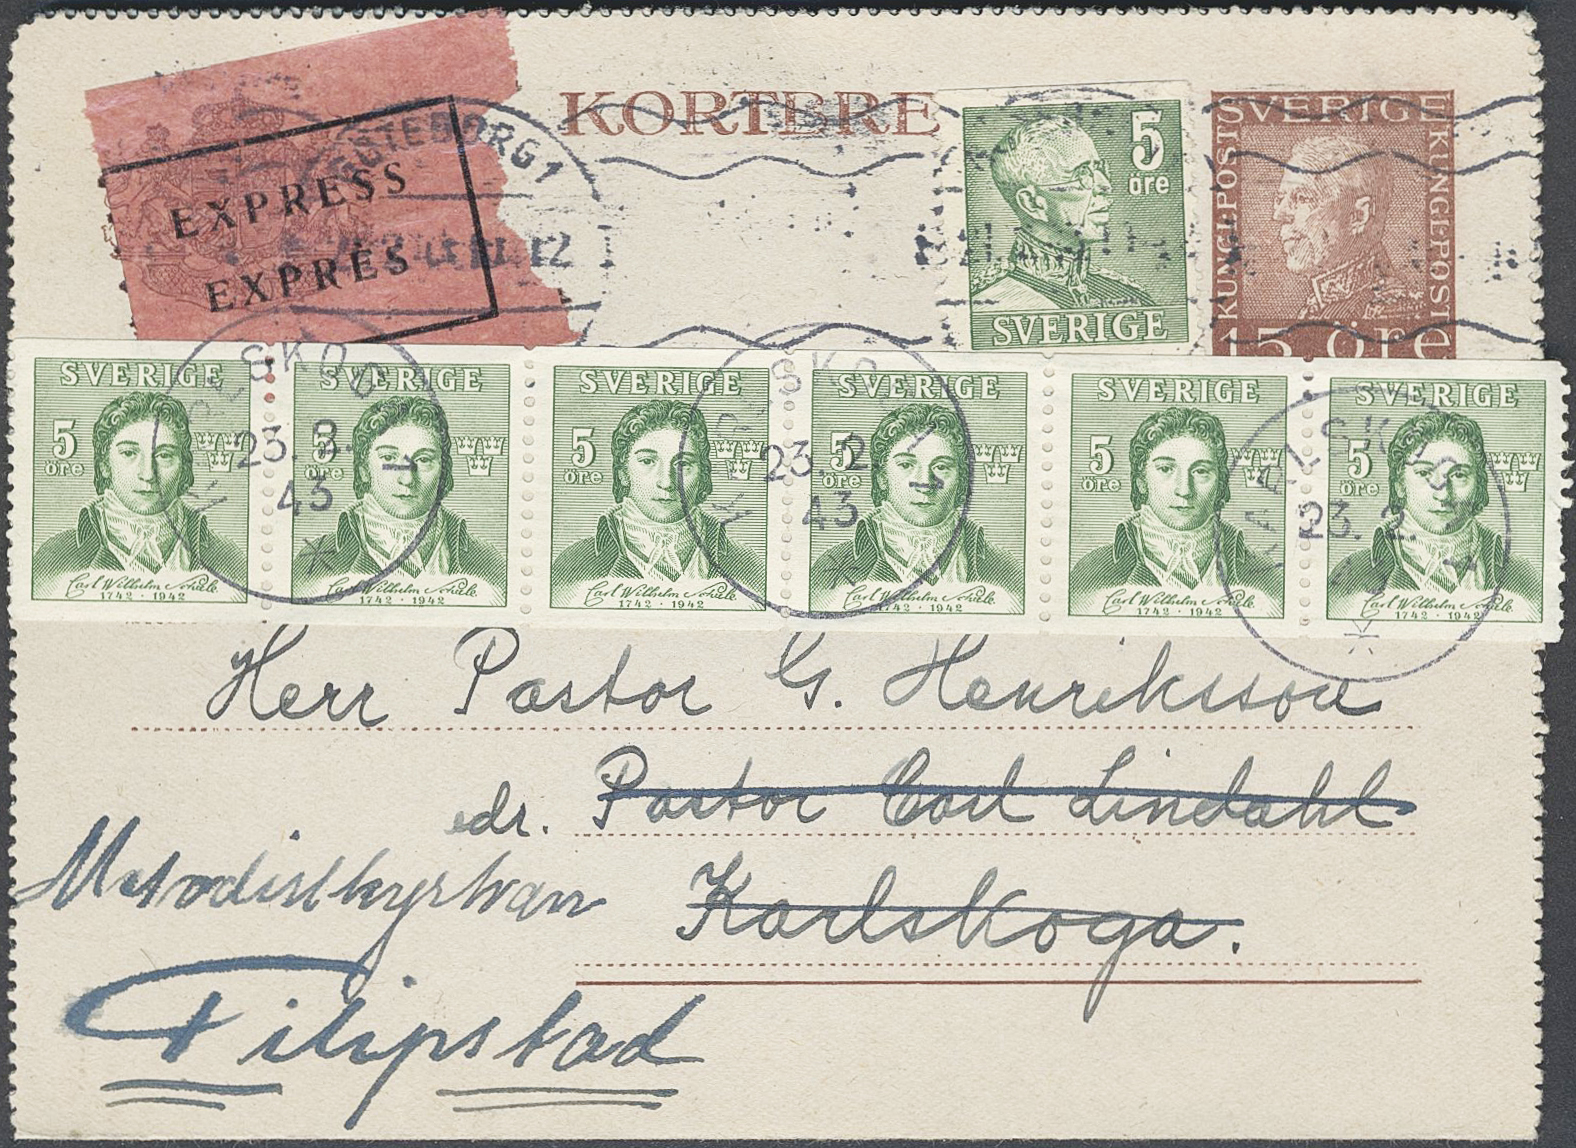 KORTBREV
EXPRESS
EXPRÈS
GÖTEBORG 1
5
öre
SVERIGE
SVERIGE
KUNGL·POST
KUNGL·POST
15 öre
SVERIGE
5
öre
Carl Wilhelm Scheele
1742 · 1942
SVERIGE
5
öre
Carl Wilhelm Scheele
1742 · 1942
SVERIGE
5
öre
Carl Wilhelm Scheele
1742 · 1942
SVERIGE
5
öre
Carl Wilhelm Scheele
1742 · 1942
SVERIGE
5
öre
Carl Wilhelm Scheele
1742 · 1942
SVERIGE
5
öre
Carl Wilhelm Scheele
1742 · 1942
KARLSKOGA 1
23. 2.
43
KARLSKOGA 1
23. 2.
43
KARLSKOGA 1
23. 2.
Herr Pastor G. Henriksson
adr. Pastor Carl Lindahl
Metodistkyrkan Karlskoga.
Filipstad